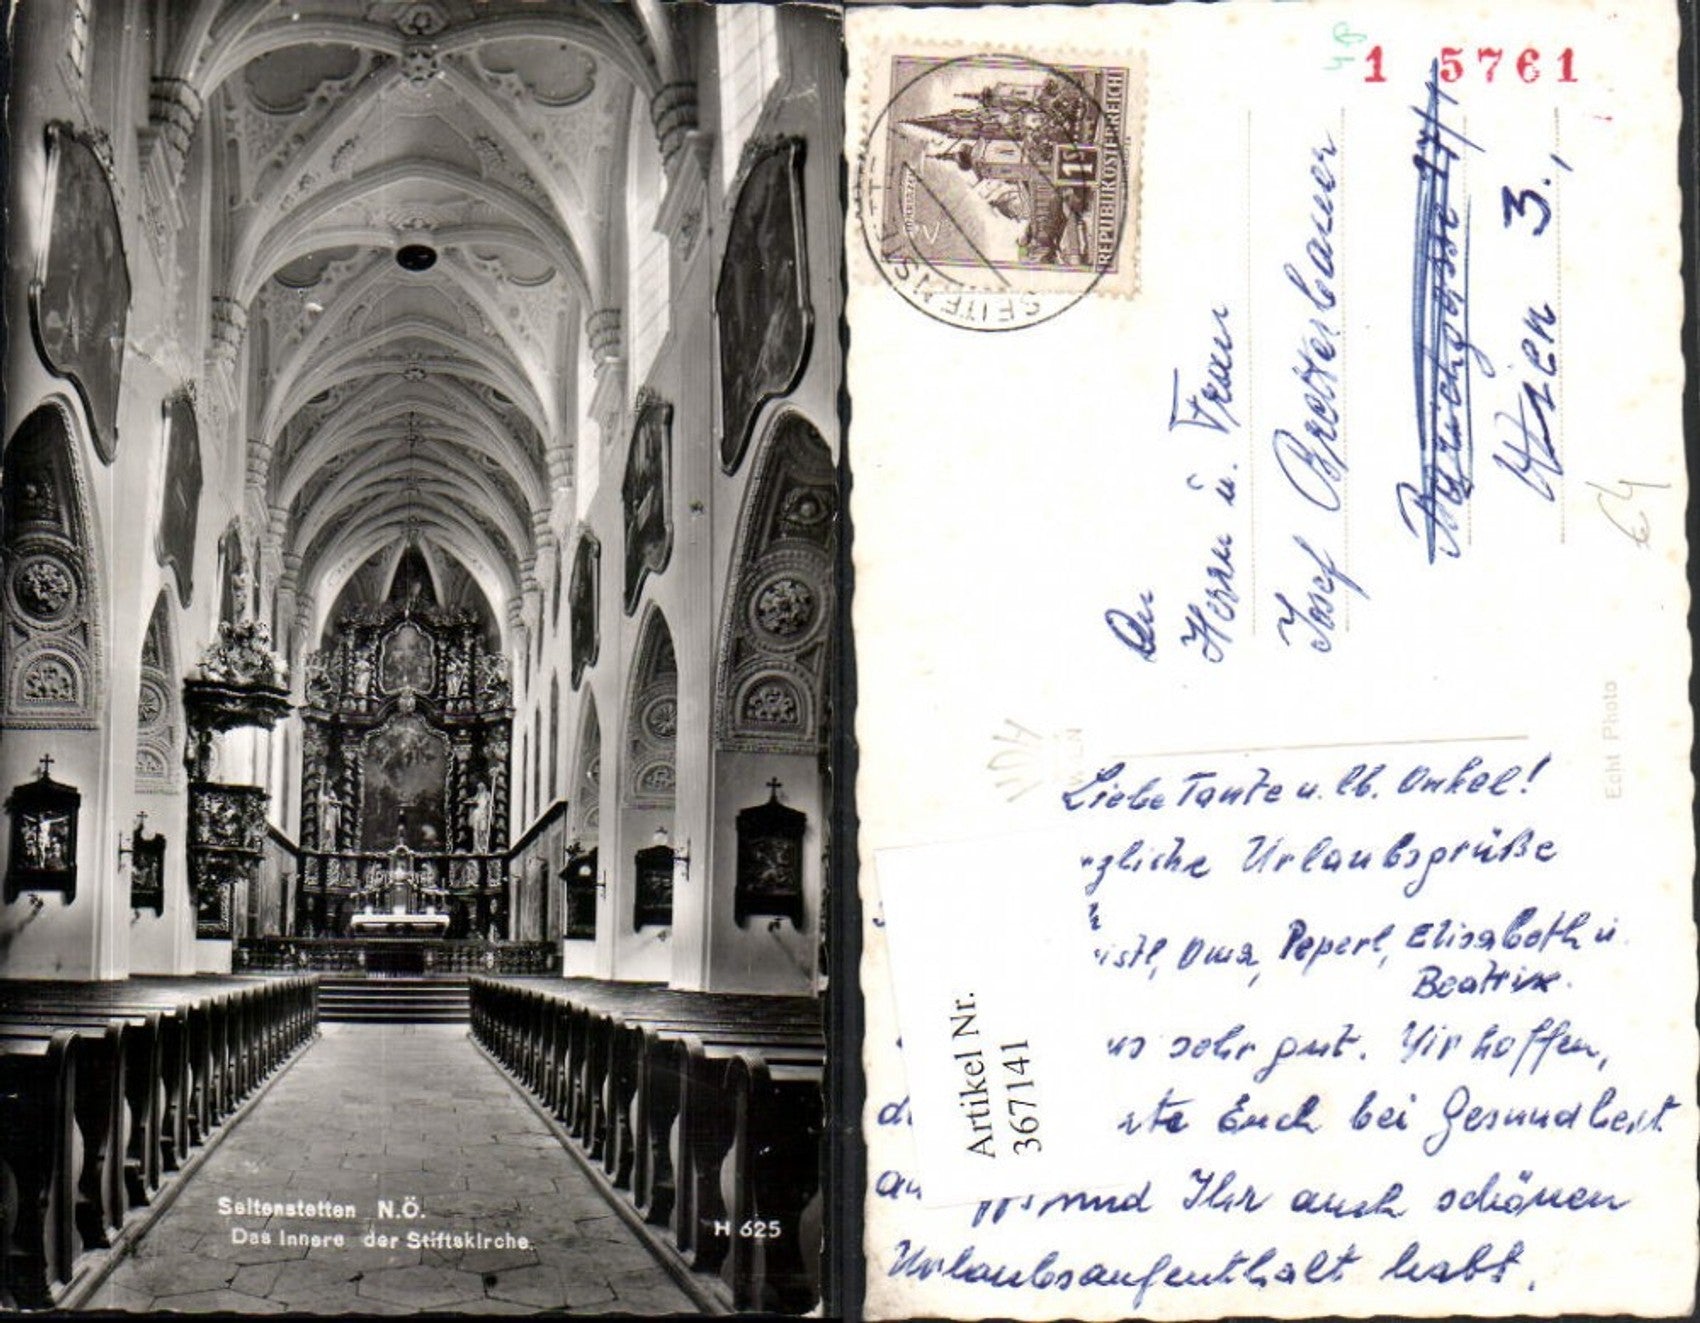 Seitenstetten N.Ö.
Das Innere der Stiftskirche.
H 625
1 5761
1s
REPUBLIK ÖSTERREICH
SEITENST
An
Herrn u. Frau
Josef Breiterbauer
Wien 3.,
Echt Photo
Liebe Tante u. lb. Onkel!
zliche Urlaubsgrüße
istl, Oma, Peperl, Elisabeth u.
Beatrix.
uns sehr gut. Wir hoffen,
d rte Euch bei Gesundheit
an und Ihr auch schönen
Urlaubsaufenthalt habt.
Artikel Nr.
367141
€4